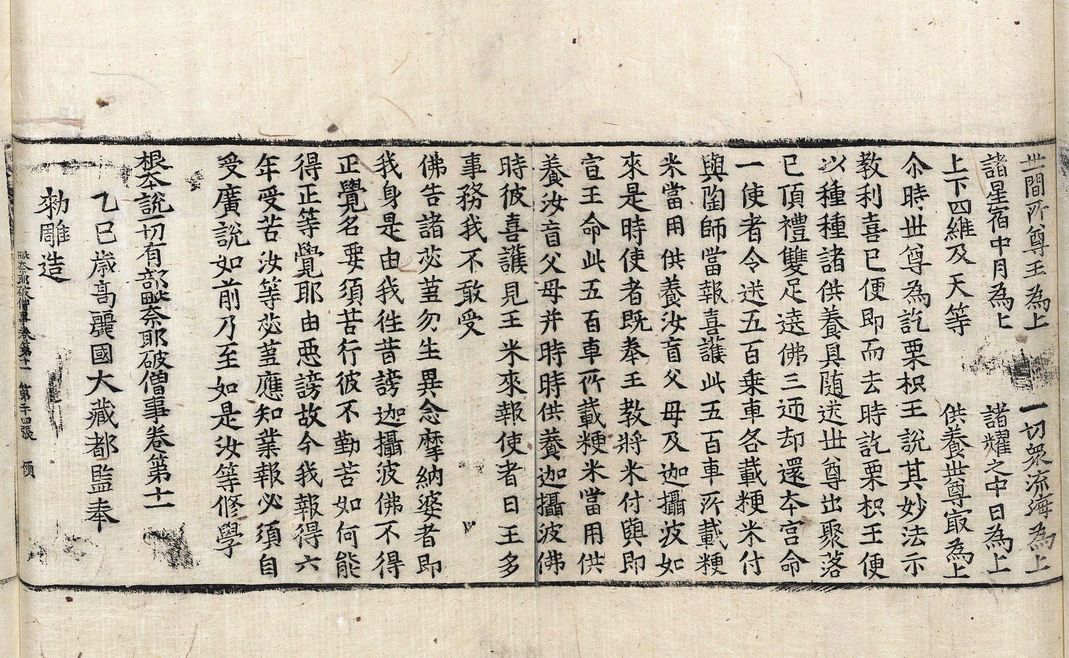 世間所尊王為上 一切衆流海為上
諸星宿中月為上 諸耀之中日為上
上下四維及天等 供養世尊㝡為上
尒時世尊為訖栗枳王說其妙法示
教利喜已便即而去時訖栗枳王便
以種種諸供養具随送世尊出聚落
已頂禮雙足遶佛三迊却還本宮命
一使者令送五百乗車各載粳米付
與陶師當報喜護此五百車所載粳
米當用供養汝盲父母及迦攝波如
來是時使者既奉王教將米付與即
宣王命此五百車所載粳米當用供
養汝盲父母并時時供養迦攝波佛
時彼喜護見王米來報使者曰王多
事務我不敢受
佛告諸苾蒭勿生異念摩納婆者即
我身是由我往昔謗迦攝波佛不得
正覺名要須苦行彼不勤苦如何能
得正等覺耶由惡謗故今我報得六
年受苦汝等苾蒭應知業報必須自
受廣說如前乃至如是汝等修學
根本說一切有部毗奈耶破僧事卷第十一
乙巳歳高麗國大藏都監奉
勑雕造
毗奈耶破僧事卷第十一 第二十四張 傾